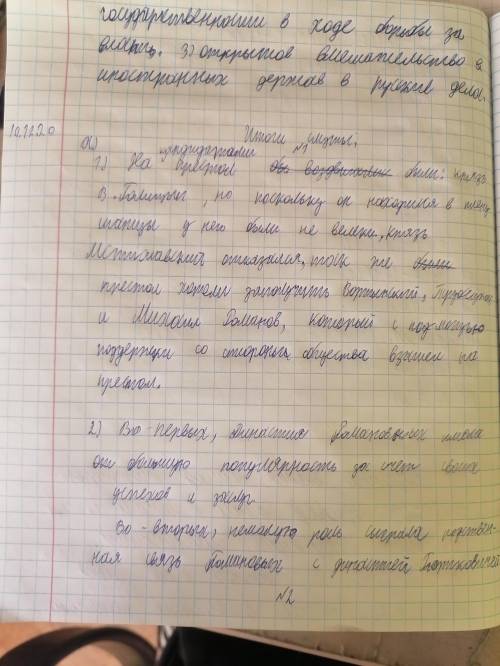 государственности в ходе борьбы за
власть. 3) открытое вмешательство
иностранных держав в русские дела.
10.12.20
Итоги смуты.
№1
кандидатами
1) На престол были: князь
В. Голицын, но поскольку он находился в плену
шансы у него были не велики, князь
Мстиславский отказался, так же
престол хотели заполучить Воротынский, Трубецкой
и Михаил Романов, который с помощью
поддержки со стороны общества взошел на
престол.
2) Во-первых, династия Романовых имела
большую популярность за счет своих
успехов и заслуг.
Во-вторых, немалую роль сыграла родствен-
ная связь Романовых с династией
№2